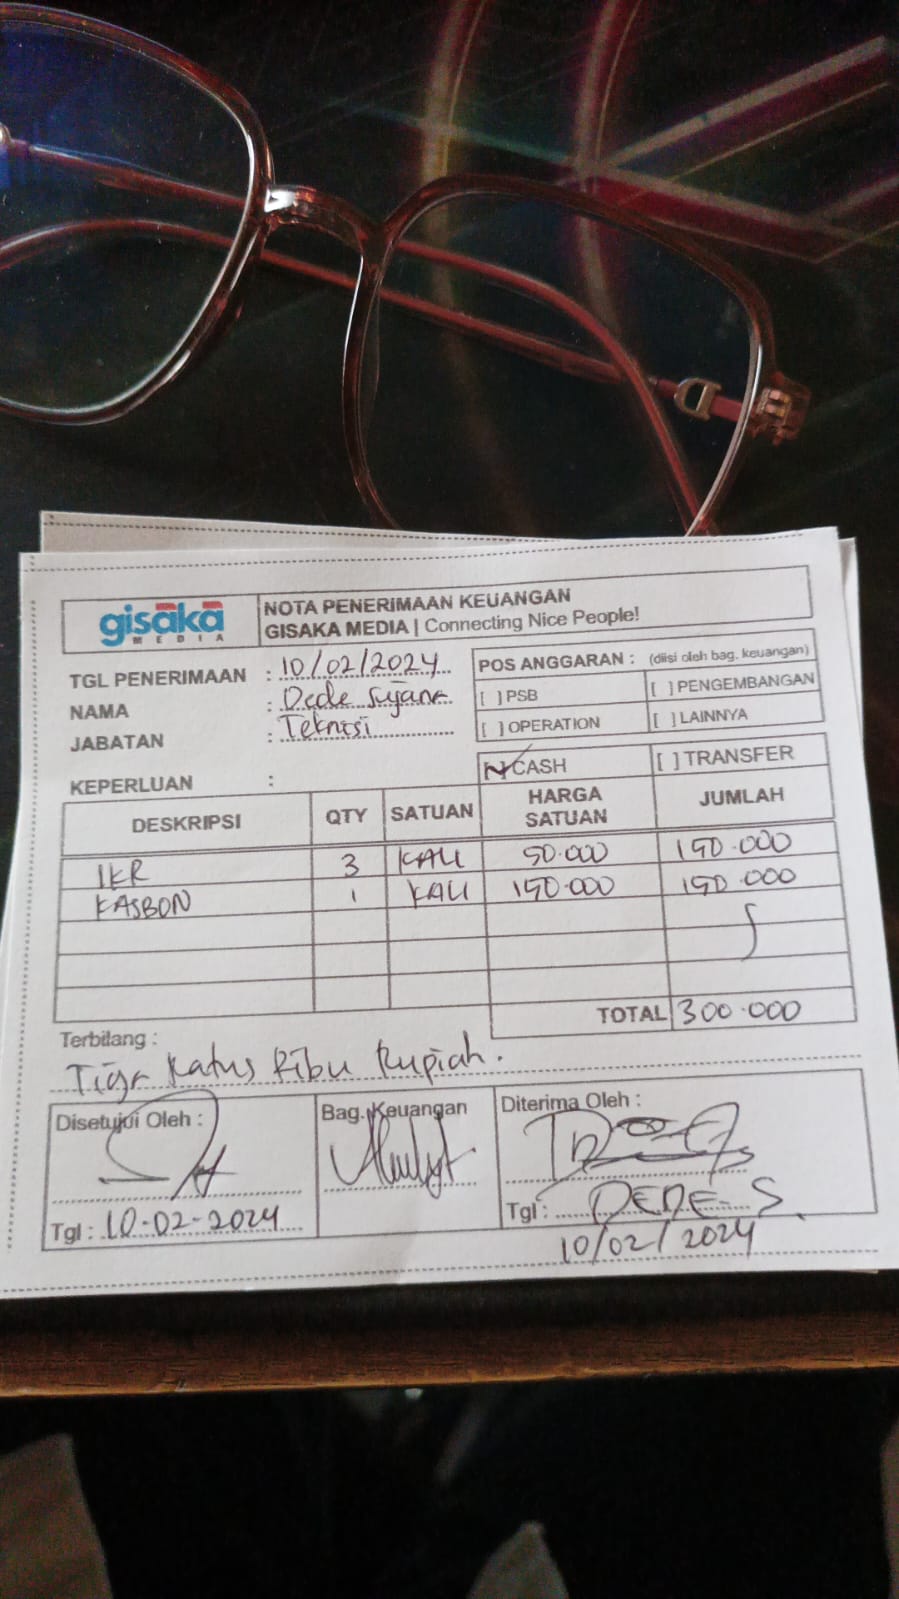 gisaka
MEDIA
NOTA PENERIMAAN KEUANGAN
GISAKA MEDIA | Connecting Nice People!
TGL PENERIMAAN : 10/02/2024
NAMA : Dede Sujana
JABATAN : Teknisi
KEPERLUAN :
POS ANGGARAN : (diisi oleh bag. keuangan)
[ ] PSB [ ] PENGEMBANGAN
[ ] OPERATION [ ] LAINNYA
[✓] CASH [ ] TRANSFER
DESKRIPSI QTY SATUAN HARGA SATUAN JUMLAH
IKR 3 KALI 50.000 150.000
KASBON 1 KALI 150.000 150.000
TOTAL 300.000
Terbilang :
Tiga Ratus Ribu Rupiah.
Disetujui Oleh : Bag. Keuangan Diterima Oleh :
Tgl : 10-02-2024 Tgl : DEDE-S
10/02/2024